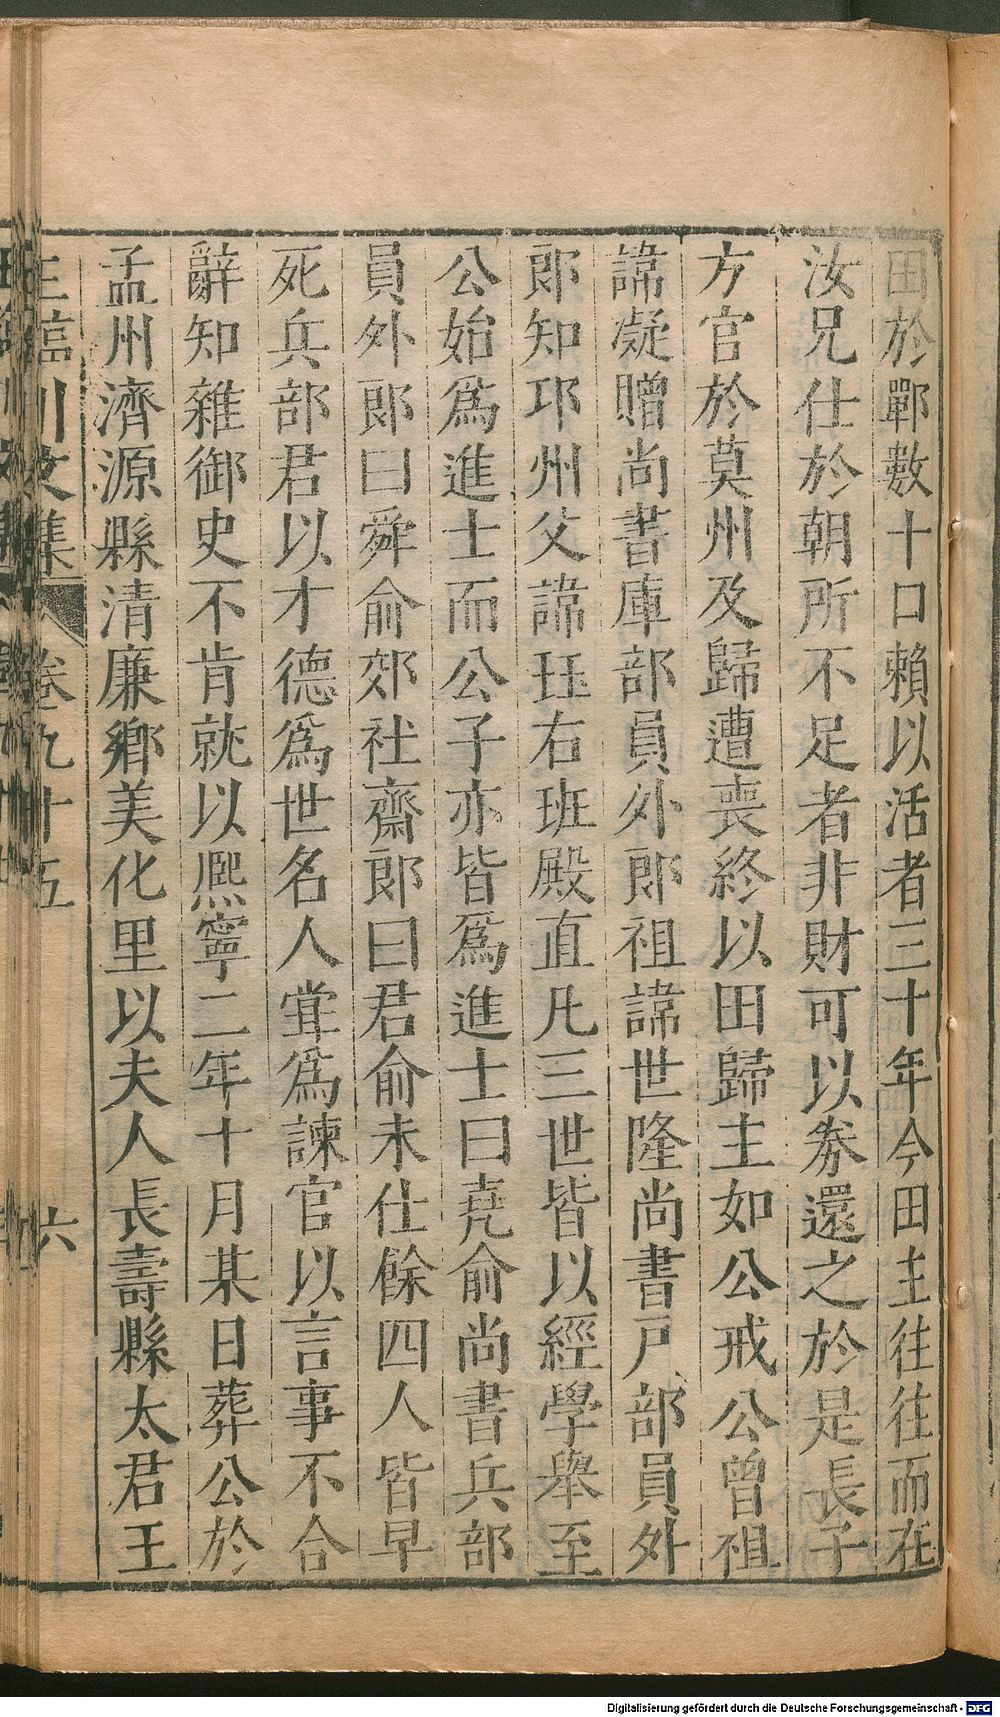 田於鄲數十口賴以活者三十年今田主往往而在
汝兄仕於朝所不足者非財可以劵還之於是長子
方官於莫州及歸遭喪終以田歸主如公戒公曾祖
諱凝贈尚書庫部員外郎祖諱世隆尚書戸部員外
郎知邛州父諱珏右班殿直凡三世皆以經學舉至
公始爲進士而公子亦皆爲進士曰堯俞尚書兵部
員外郎曰舜俞郊社齋郎曰君俞未仕餘四人皆早
死兵部君以才德爲世名人甞爲諫官以言事不合
辭知雜御史不肯就以熈寧二年十月某日葬公於
孟州濟源縣清廉鄉美化里以夫人長壽縣太君王
王臨川文集 卷九十五 六
Digitalisierung gefördert durch die Deutsche Forschungsgemeinschaft - DFG